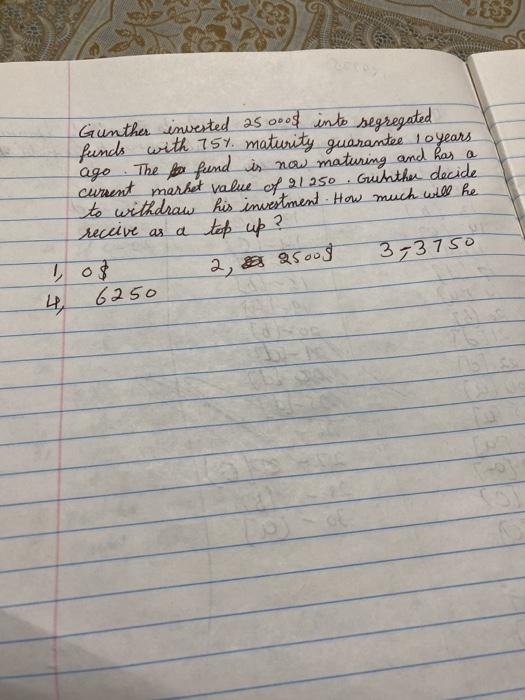 Gunther invested 25 000$ into segregated
funds with 75%. maturity guarantee 10 years
ago. The fund is now maturing and has a
current market value of 21 250. Guhther decide
to withdraw his investment. How much will he
receive as a top up?
1, 0$ 2, 2500$ 3, 3750
4, 6250